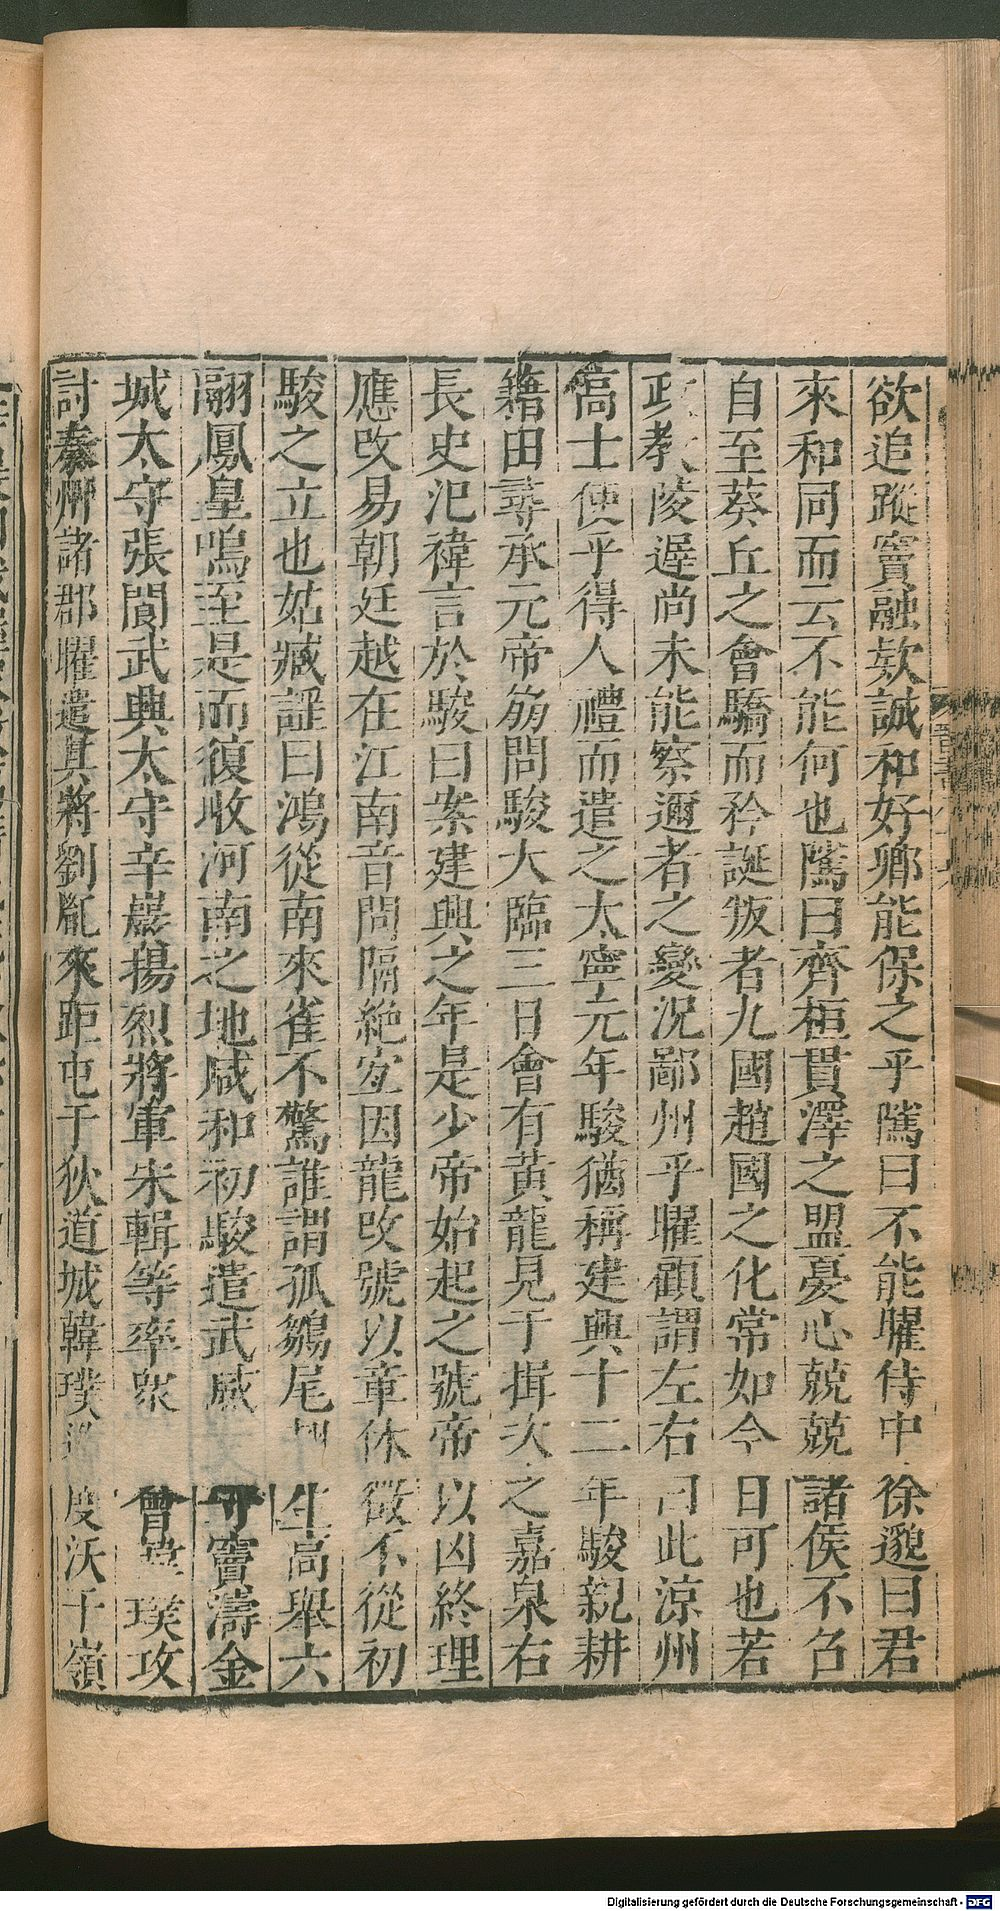 欲追蹤竇融欵誠和好鄉能保之乎隲曰不能曜侍中徐邈曰君
來和同而云不能何也隲曰齊桓貫澤之盟憂心兢兢諸侯不召
自至葵丘之會驕而矜誕叛者九國趙國之化常如今日可也若
政教陵遲尚未能察邇者之變況鄙州乎曜顧謂左右曰此涼州
高士使乎得人禮而遣之太寧元年駿猶稱建興十二年駿親耕
籍田尋承元帝崩問駿大臨三日會有黃龍見于揖次之嘉泉右
長史氾禕言於駿曰案建興之年是少帝始起之號帝以凶終理
應改易朝廷越在江南音問隔絶宐因龍改號以章休徵不從初
駿之立也姑臧謡曰鴻從南來雀不驚誰謂孤鶵尾生高舉六
翮鳳皇鳴至是而復收河南之地咸和初駿遣武威竇濤金
城太守張閬武興太守辛巖揚烈將軍宋輯等率眾韓璞攻
討秦州諸郡曜遣其將劉胤來距屯于狄道城韓璞度沃干嶺
晉書
Digitalisierung gefördert durch die Deutsche Forschungsgemeinschaft - DFG